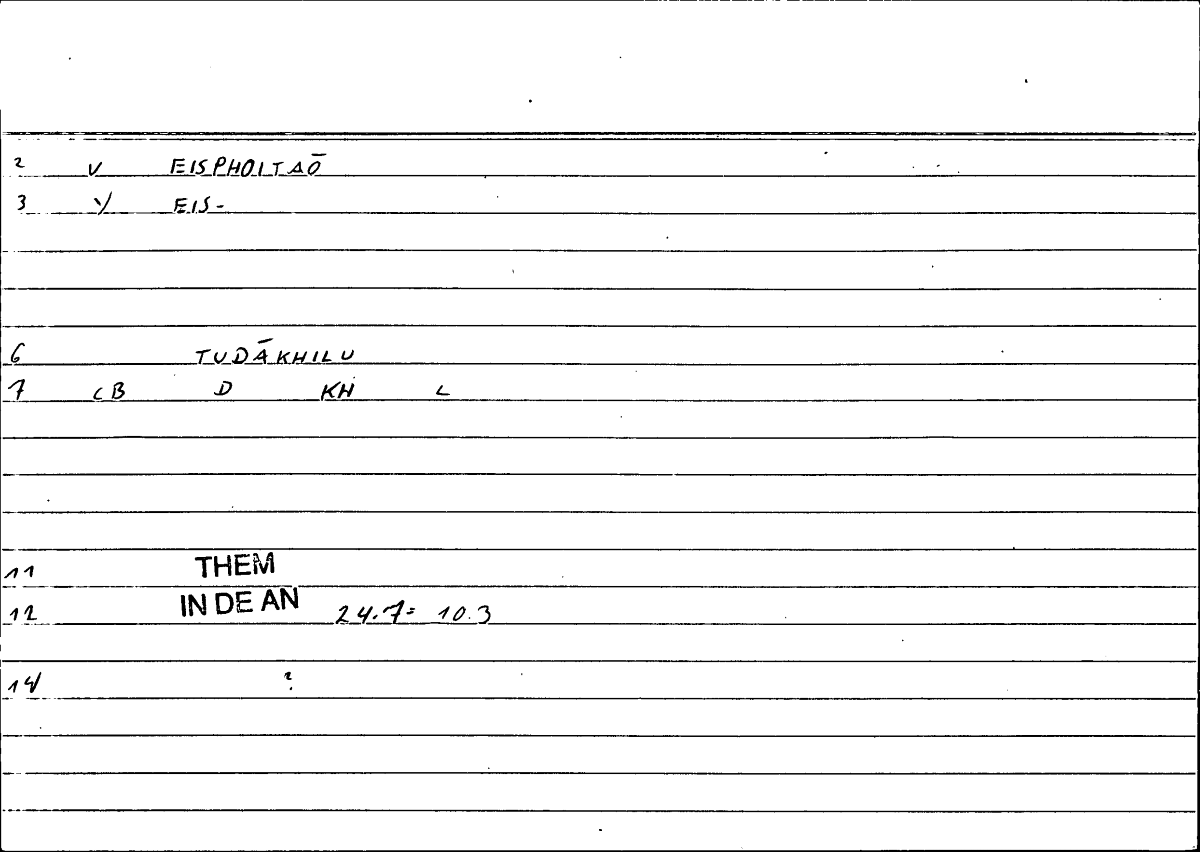 2 V EISPHOITAŌ
3 Y EIS-
6 TUDĀKHILU
7 CB D KH L
11 THEM
12 IN DE AN 24.7= 10.3
14 ?